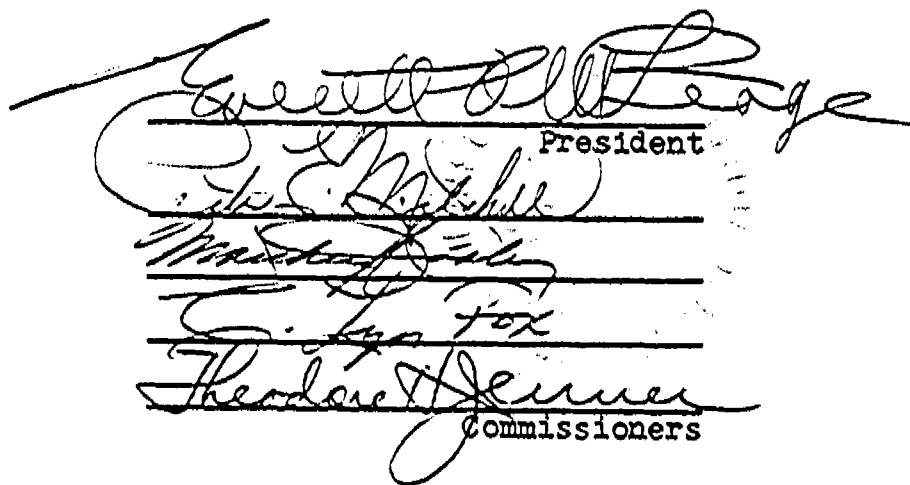 Everett C. McKeage
President
E. Mitchell
C. Lyn Fox
Theodore H Jenner
Commissioners